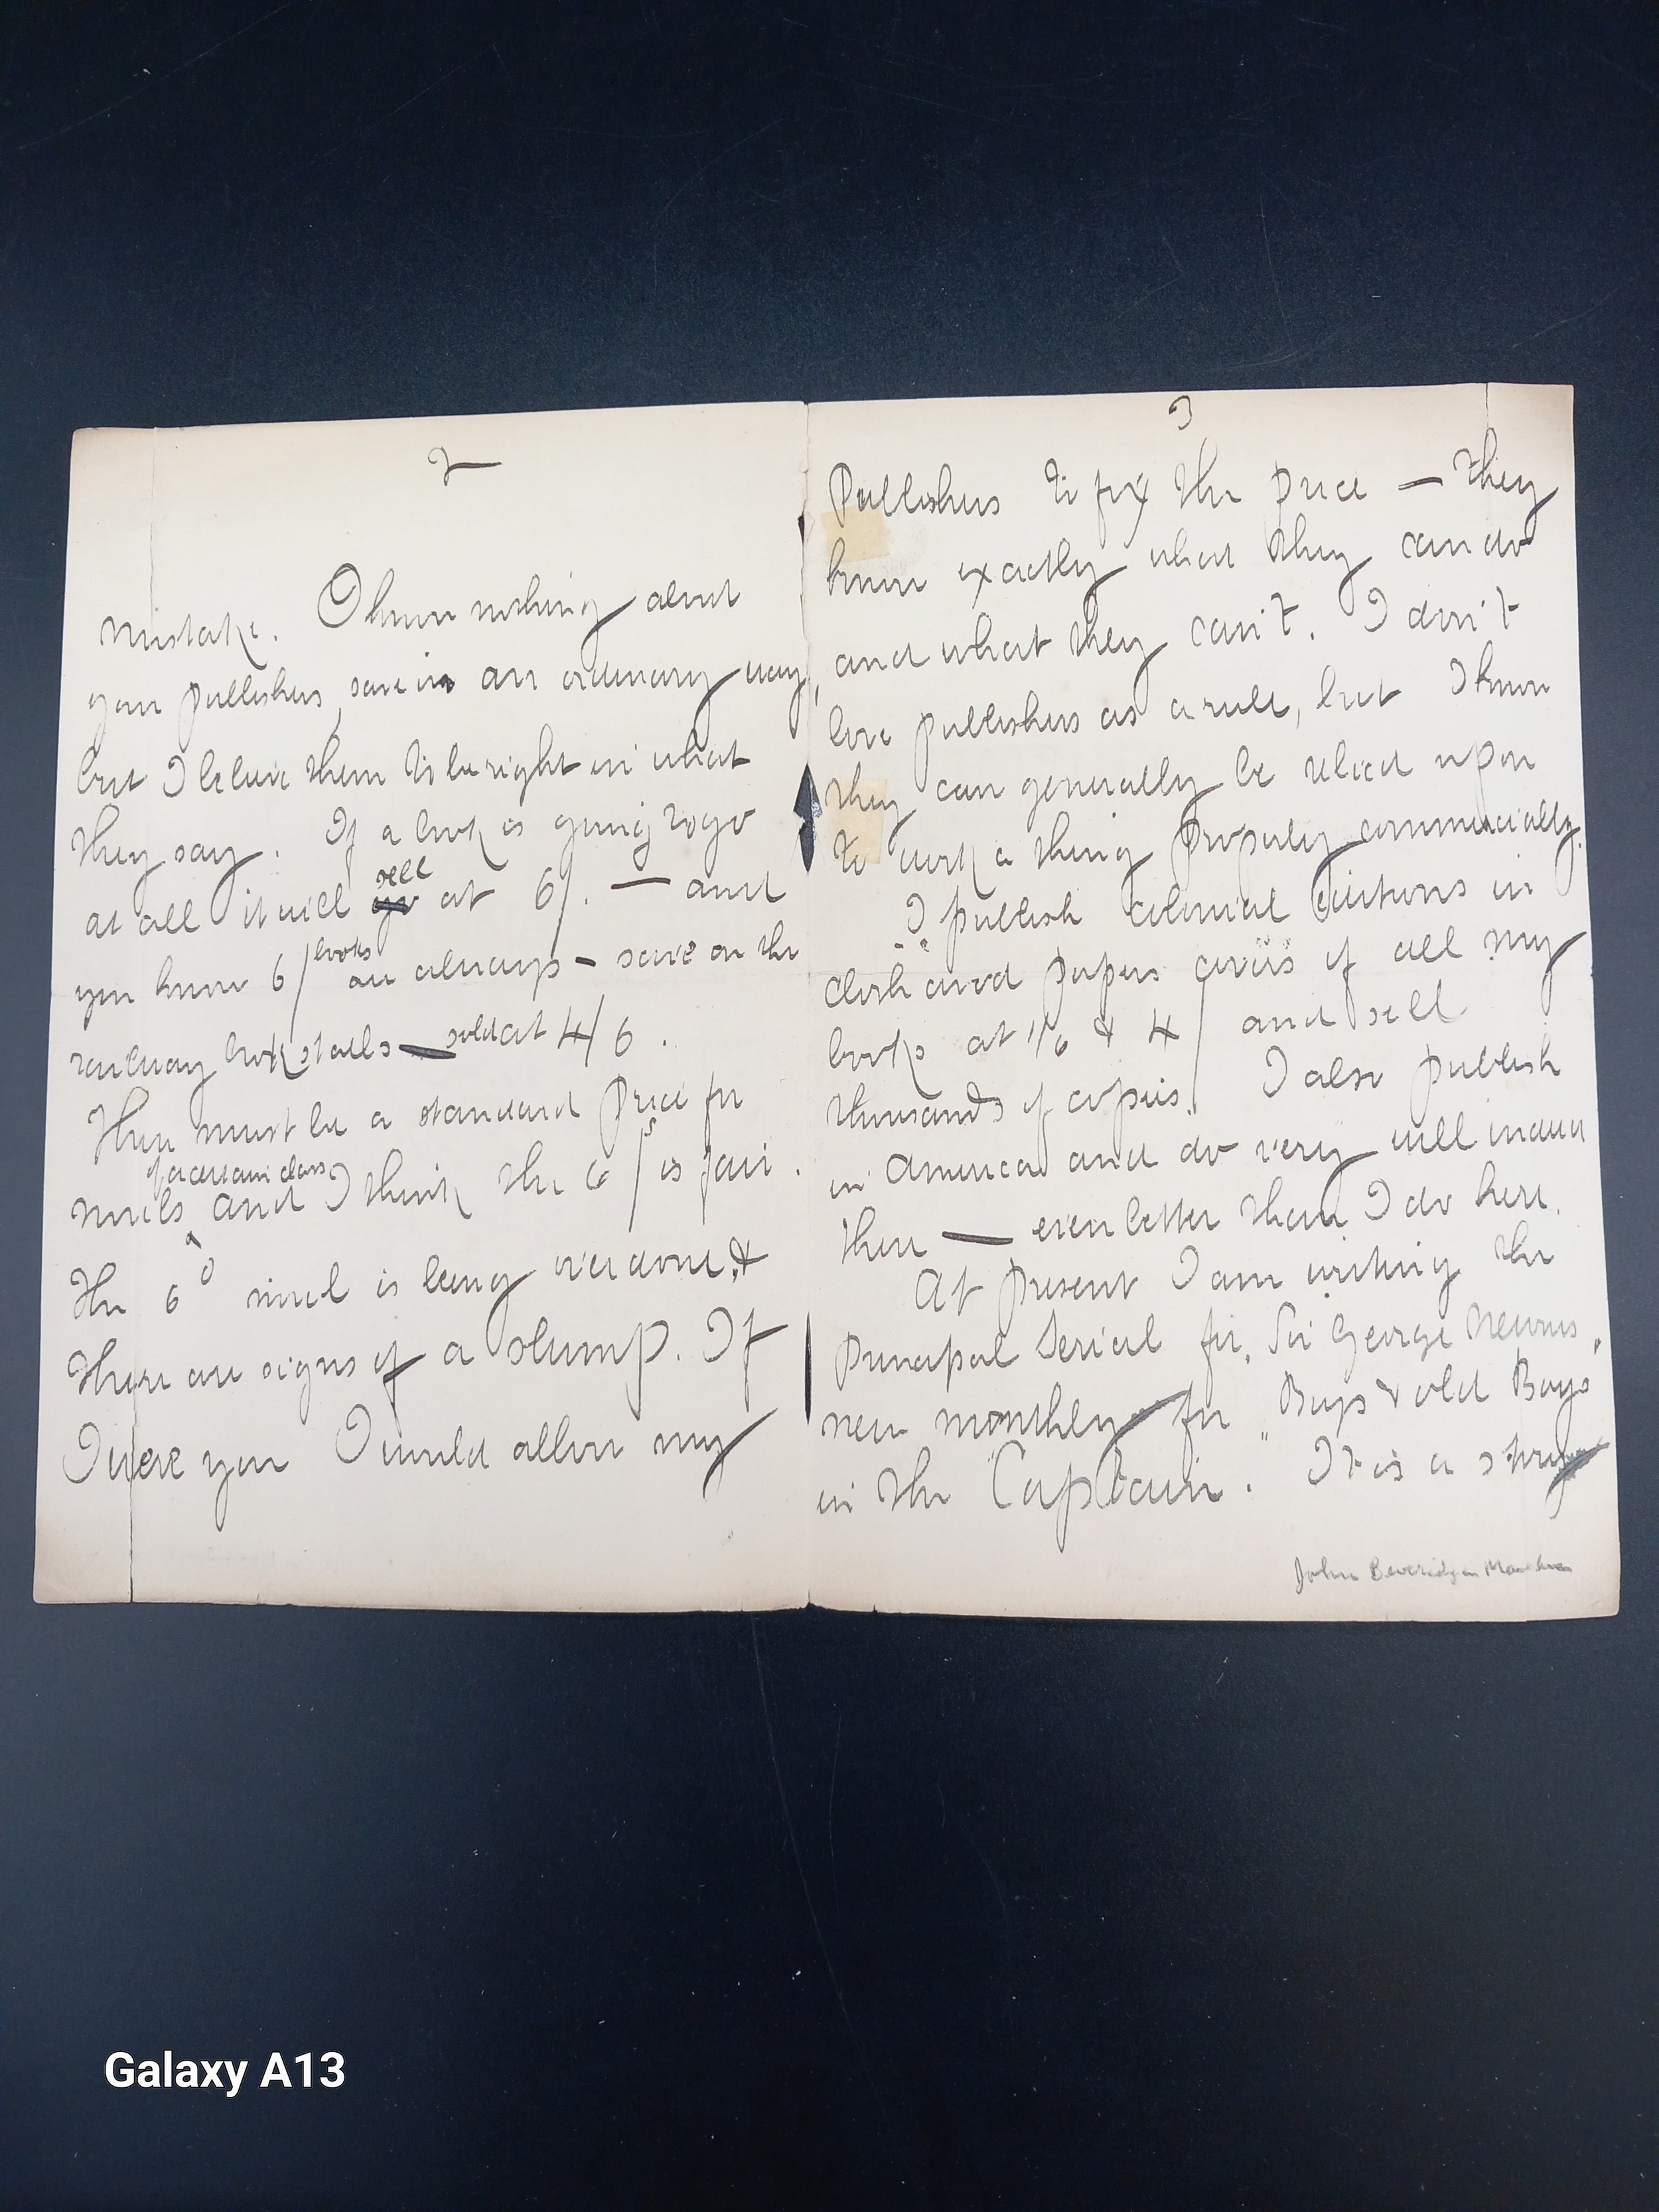 2
mistake. I know nothing about
your publishers, save in an ordinary way,
but I believe them to be right in what
they say. If a book is going to go
sell
at all it will go at 6/. — and
books
you know 6/ are always - save on the
railway bookstalls — sold at 4/6.
There must be a standard price for
of a certain class
novels and I think the 6/s is fair.
The 6d novel is being overdone, &
there are signs of a slump. If
I were you I would allow my
3
Publishers to fix the price — they
know exactly what they can do
and what they can't. I don't
love publishers as a rule, but I know
they can generally be relied upon
to work a thing properly commercially.
I publish colonial editions in
cloth and papers covers of all my
books at 1/6 & 4/ and sell
thousands of copies. I also publish
in America and do very well indeed
there — even better than I do here.
At present I am writing the
principal serial for Sir George Newnes
new monthly for "Boys & old Boys"
in the Captain. It is a story
John Beveridge
Galaxy A13